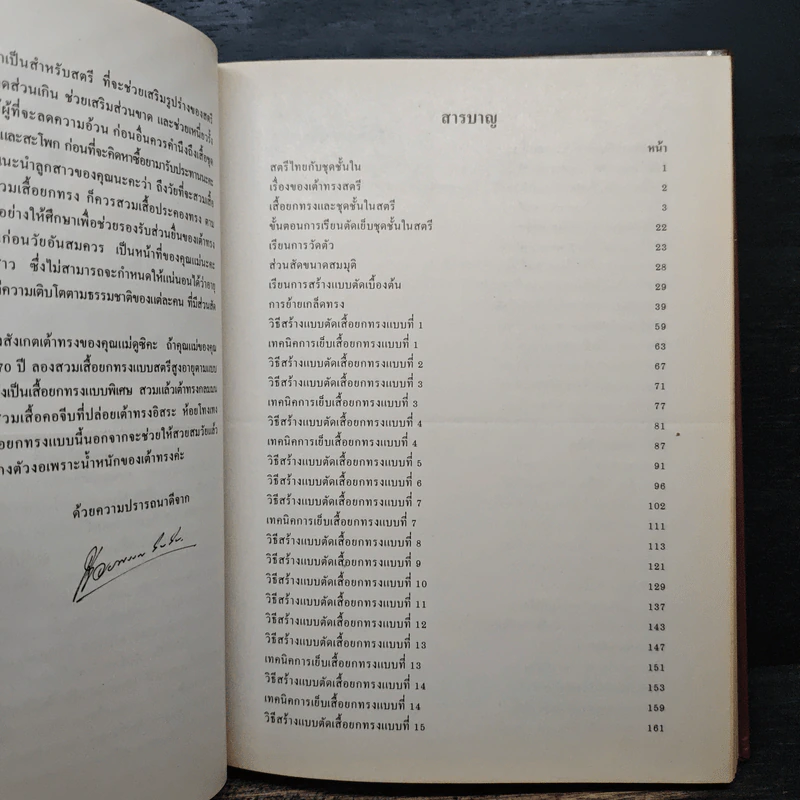 เป็นสำหรับสตรี ที่จะช่วยเสริมรูปร่างของสตรี
ส่วนเกิน ช่วยเสริมส่วนขาด และช่วยเหนี่ยวรั้ง
ผู้ที่จะลดความอ้วน ก่อนอื่นควรคำนึงถึงเสื้อชุด
และสะโพก ก่อนที่จะคิดหาซื้อยามารับประทานนะคะ
แนะนำลูกสาวของคุณนะคะว่า ถึงวัยที่จะสวมเสื้อ
วมเสื้อยกทรง ก็ควรสวมเสื้อประคองทรง ตาม
อย่างให้ศึกษาเพื่อช่วยรองรับส่วนยื่นของเต้าทรง
ก่อนวัยอันสมควร เป็นหน้าที่ของคุณแม่นะคะ
าว ซึ่งไม่สามารถจะกำหนดให้แน่นอนได้ว่าอายุ
ความเติบโตตามธรรมชาติของแต่ละคน ที่มีส่วนสัด
งสังเกตเต้าทรงของคุณแม่ดูซิคะ ถ้าคุณแม่ของคุณ
70 ปี ลองสวมเสื้อยกทรงแบบสตรีสูงอายุตามแบบ
งเป็นเสื้อยกทรงแบบพิเศษ สวมแล้วเต้าทรงกลมมน
วมเสื้อคอจีบที่ปล่อยเต้าทรงอิสระ ห้อยโทงเทง
อยกทรงแบบนี้นอกจากจะช่วยให้สวยสมวัยแล้ว
างตัวงอเพราะน้ำหนักของเต้าทรงค่ะ
ด้วยความปรารถนาดีจาก
สารบาญ
หน้า
สตรีไทยกับชุดชั้นใน 1
เรื่องของเต้าทรงสตรี 2
เสื้อยกทรงและชุดชั้นในสตรี 3
ขั้นตอนการเรียนตัดเย็บชุดชั้นในสตรี 22
เรียนการวัดตัว 23
ส่วนสัดขนาดสมมุติ 28
เรียนการสร้างแบบตัดเบื้องต้น 29
การย้ายเกล็ดทรง 39
วิธีสร้างแบบตัดเสื้อยกทรงแบบที่ 1 59
เทคนิคการเย็บเสื้อยกทรงแบบที่ 1 63
วิธีสร้างแบบตัดเสื้อยกทรงแบบที่ 2 67
วิธีสร้างแบบตัดเสื้อยกทรงแบบที่ 3 71
เทคนิคการเย็บเสื้อยกทรงแบบที่ 3 77
วิธีสร้างแบบตัดเสื้อยกทรงแบบที่ 4 81
เทคนิคการเย็บเสื้อยกทรงแบบที่ 4 87
วิธีสร้างแบบตัดเสื้อยกทรงแบบที่ 5 91
วิธีสร้างแบบตัดเสื้อยกทรงแบบที่ 6 96
วิธีสร้างแบบตัดเสื้อยกทรงแบบที่ 7 102
เทคนิคการเย็บเสื้อยกทรงแบบที่ 7 111
วิธีสร้างแบบตัดเสื้อยกทรงแบบที่ 8 113
วิธีสร้างแบบตัดเสื้อยกทรงแบบที่ 9 121
วิธีสร้างแบบตัดเสื้อยกทรงแบบที่ 10 129
วิธีสร้างแบบตัดเสื้อยกทรงแบบที่ 11 137
วิธีสร้างแบบตัดเสื้อยกทรงแบบที่ 12 143
วิธีสร้างแบบตัดเสื้อยกทรงแบบที่ 13 147
เทคนิคการเย็บเสื้อยกทรงแบบที่ 13 151
วิธีสร้างแบบตัดเสื้อยกทรงแบบที่ 14 153
เทคนิคการเย็บเสื้อยกทรงแบบที่ 14 159
วิธีสร้างแบบตัดเสื้อยกทรงแบบที่ 15 161